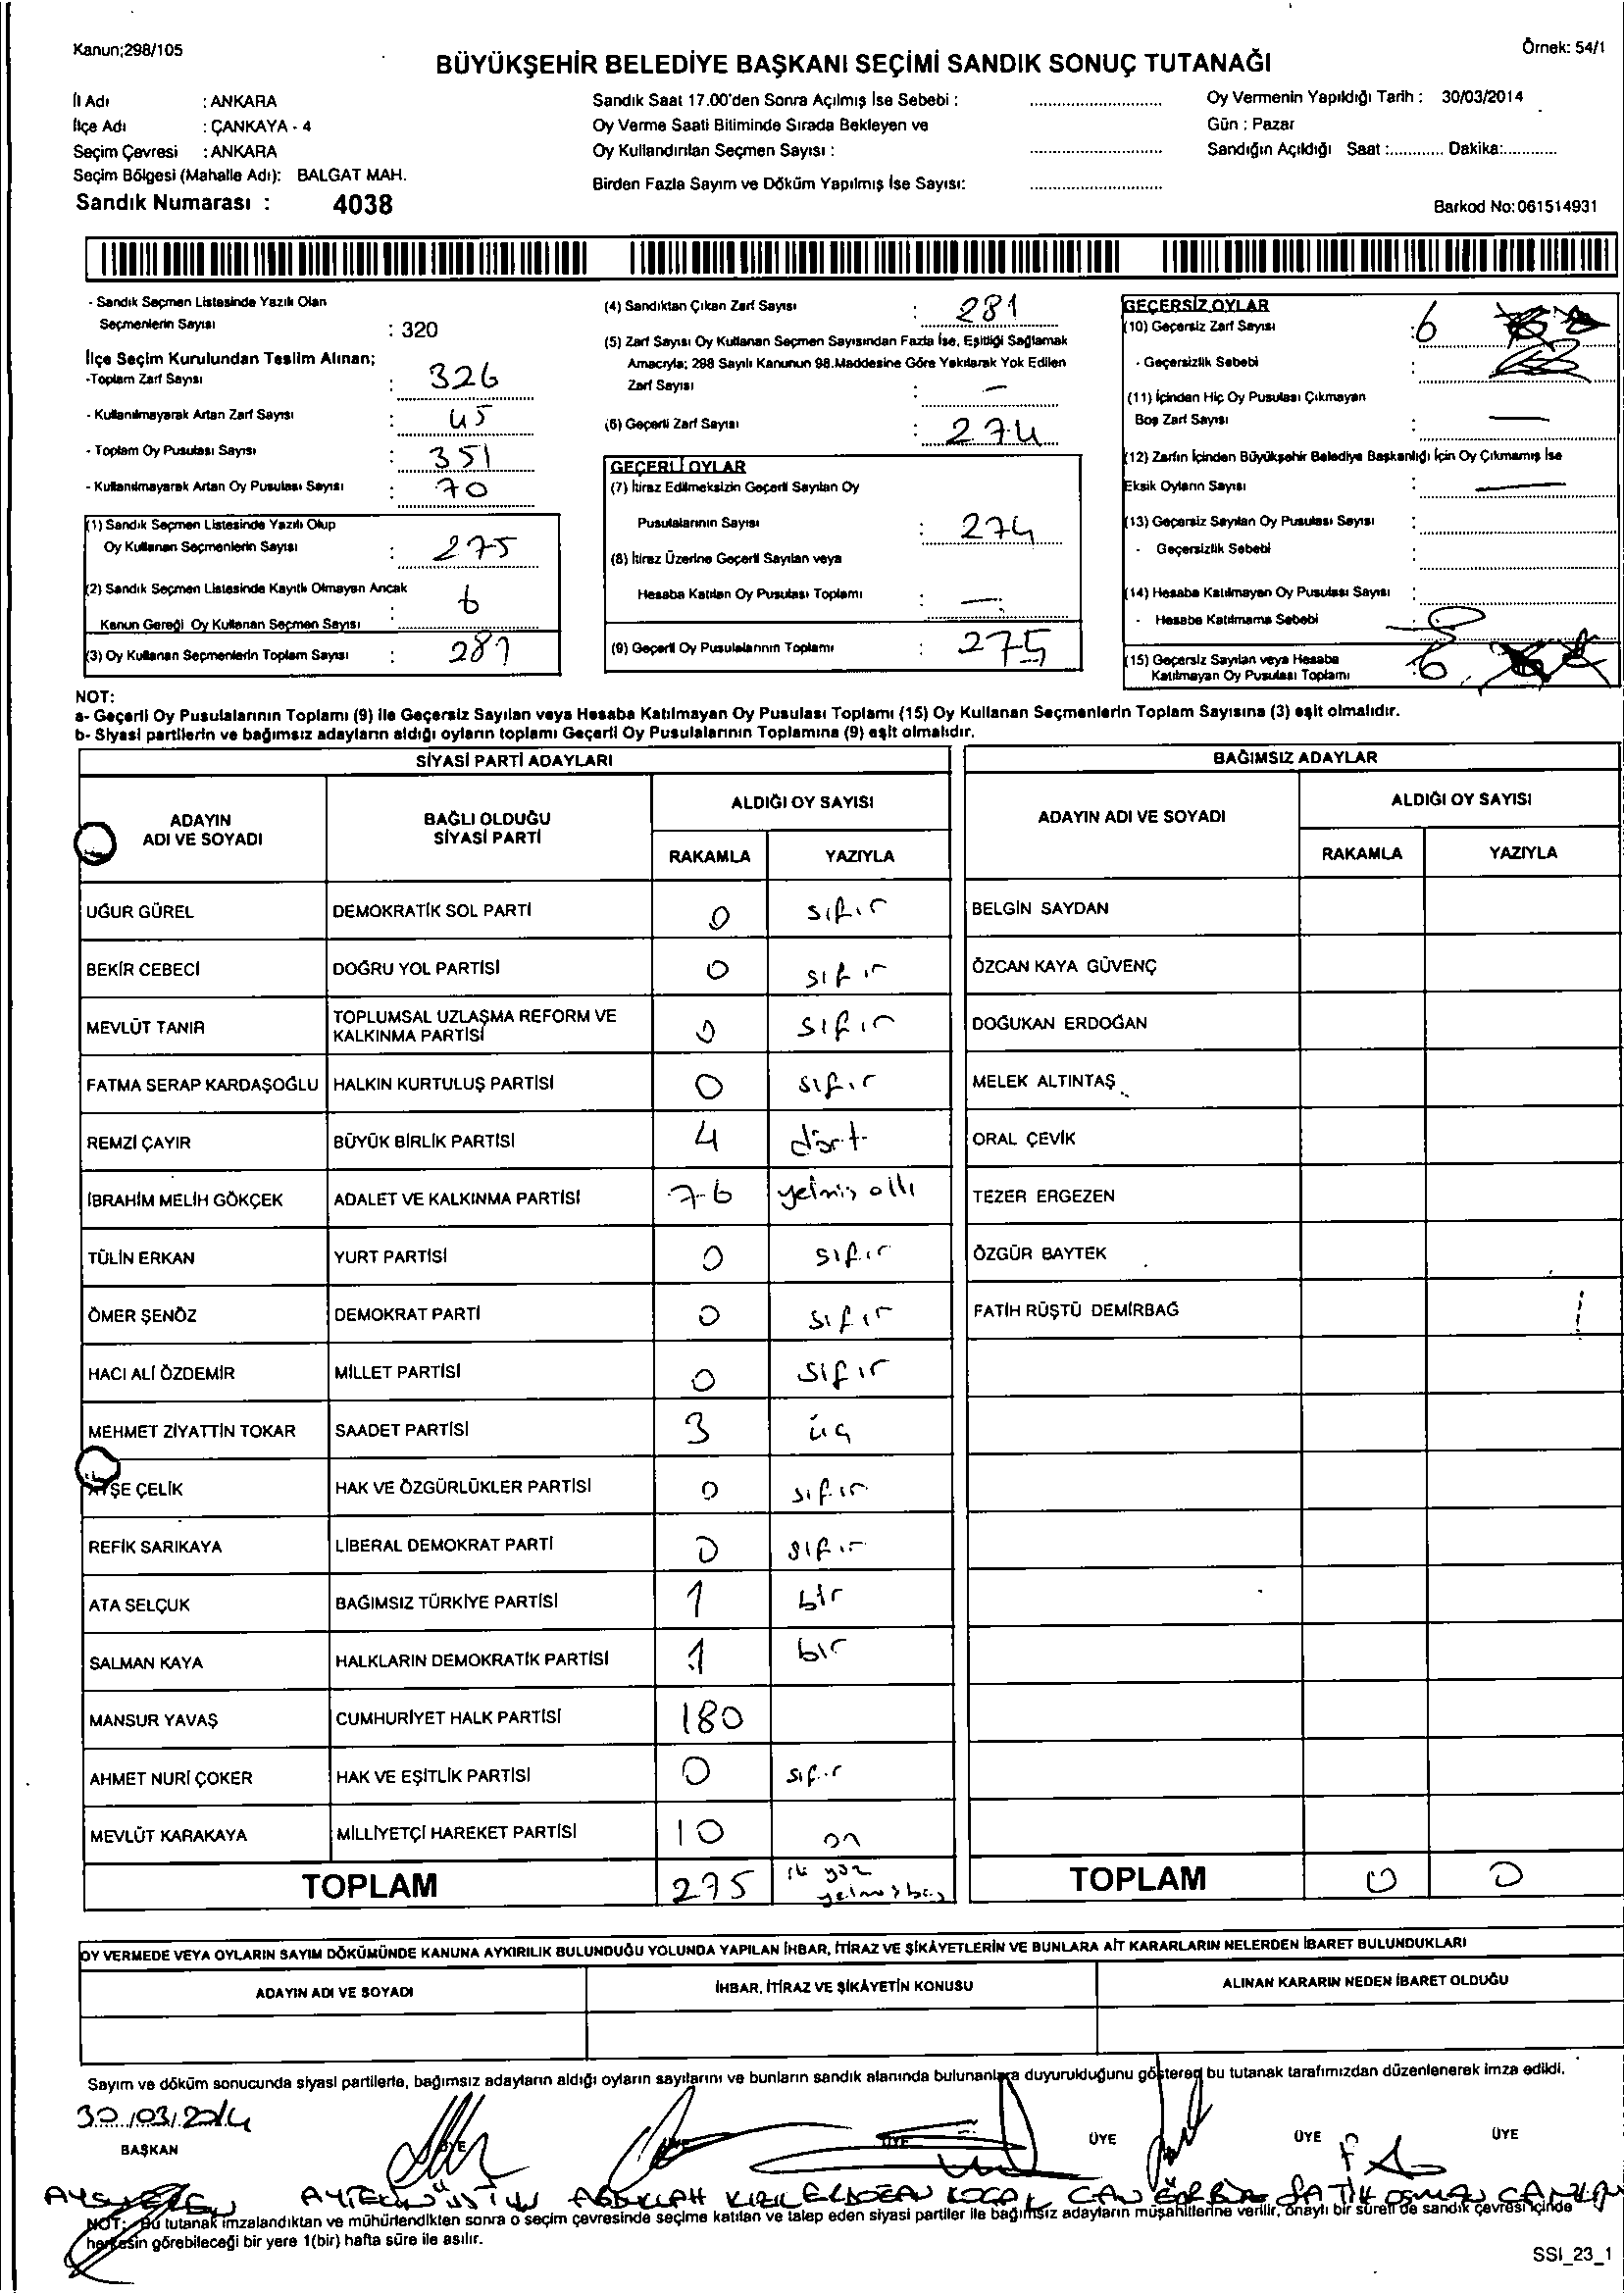 Kanun;298/105
Örnek: 54/1
BÜYÜKŞEHİR BELEDİYE BAŞKANI SEÇİMİ SANDIK SONUÇ TUTANAĞI
İl Adı : ANKARA
İlçe Adı : ÇANKAYA - 4
Seçim Çevresi : ANKARA
Seçim Bölgesi (Mahalle Adı): BALGAT MAH.
Sandık Numarası : 4038
Sandık Saat 17.00'den Sonra Açılmış İse Sebebi :
Oy Verme Saati Bitiminde Sırada Bekleyen ve
Oy Kullandırılan Seçmen Sayısı :
Birden Fazla Sayım ve Döküm Yapılmış İse Sayısı:
Oy Vermenin Yapıldığı Tarih : 30/03/2014
Gün : Pazar
Sandığın Açıldığı Saat :............ Dakika:............
Barkod No:061514931
- Sandık Seçmen Listesinde Yazılı Olan
Seçmenlerin Sayısı : 320
İlçe Seçim Kurulundan Teslim Alınan;
-Toplam Zarf Sayısı : 326
- Kullanılmayarak Artan Zarf Sayısı : 45
- Toplam Oy Pusulası Sayısı : 351
- Kullanılmayarak Artan Oy Pusulası Sayısı : 70
(1) Sandık Seçmen Listesinde Yazılı Olup
Oy Kullanan Seçmenlerin Sayısı : 275
(2) Sandık Seçmen Listesinde Kayıtlı Olmayan Ancak
Kanun Gereği Oy Kullanan Seçmen Sayısı : 6
(3) Oy Kullanan Seçmenlerin Toplam Sayısı : 281
(4) Sandıktan Çıkan Zarf Sayısı : 281
(5) Zarf Sayısı Oy Kullanan Seçmen Sayısından Fazla İse, Eşitliği Sağlamak
Amacıyla; 298 Sayılı Kanunun 98.Maddesine Göre Yakılarak Yok Edilen
Zarf Sayısı : —
(6) Geçerli Zarf Sayısı : 274
GEÇERLİ OYLAR
(7) İtiraz Edilmeksizin Geçerli Sayılan Oy
Pusulalarının Sayısı : 274
(8) İtiraz Üzerine Geçerli Sayılan veya
Hesaba Katılan Oy Pusulası Toplamı : —
(9) Geçerli Oy Pusulalarının Toplamı : 275
GEÇERSİZ OYLAR
(10) Geçersiz Zarf Sayısı : 6
- Geçersizlik Sebebi :
(11) İçinden Hiç Oy Pusulası Çıkmayan
Boş Zarf Sayısı : —
(12) Zarfın İçinden Büyükşehir Belediye Başkanlığı İçin Oy Çıkmamış İse
Eksik Oyların Sayısı : —
(13) Geçersiz Sayılan Oy Pusulası Sayısı :
- Geçersizlik Sebebi :
(14) Hesaba Katılmayan Oy Pusulası Sayısı :
- Hesaba Katılmama Sebebi
(15) Geçersiz Sayılan veya Hesaba
Katılmayan Oy Pusulası Toplamı 6
NOT:
a- Geçerli Oy Pusulalarının Toplamı (9) ile Geçersiz Sayılan veya Hesaba Katılmayan Oy Pusulası Toplamı (15) Oy Kullanan Seçmenlerin Toplam Sayısına (3) eşit olmalıdır.
b- Siyasi partilerin ve bağımsız adayların aldığı oyların toplamı Geçerli Oy Pusulalarının Toplamına (9) eşit olmalıdır.
SİYASİ PARTİ ADAYLARI
ADAYIN ADI VE SOYADI
BAĞLI OLDUĞU SİYASİ PARTİ
ALDIĞI OY SAYISI
RAKAMLA YAZIYLA
UĞUR GÜREL DEMOKRATİK SOL PARTİ 0 sıfır
BEKİR CEBECİ DOĞRU YOL PARTİSİ 0 sıfır
MEVLÜT TANIR TOPLUMSAL UZLAŞMA REFORM VE KALKINMA PARTİSİ 0 sıfır
FATMA SERAP KARDAŞOĞLU HALKIN KURTULUŞ PARTİSİ 0 sıfır
REMZİ ÇAYIR BÜYÜK BİRLİK PARTİSİ 4 dört
İBRAHİM MELİH GÖKÇEK ADALET VE KALKINMA PARTİSİ 76 yetmiş altı
TÜLİN ERKAN YURT PARTİSİ 0 sıfır
ÖMER ŞENÖZ DEMOKRAT PARTİ 0 sıfır
HACI ALİ ÖZDEMİR MİLLET PARTİSİ 0 sıfır
MEHMET ZİYATTİN TOKAR SAADET PARTİSİ 3 üç
AYŞE ÇELİK HAK VE ÖZGÜRLÜKLER PARTİSİ 0 sıfır
REFİK SARIKAYA LİBERAL DEMOKRAT PARTİ 0 sıfır
ATA SELÇUK BAĞIMSIZ TÜRKİYE PARTİSİ 1 bir
SALMAN KAYA HALKLARIN DEMOKRATİK PARTİSİ 1 bir
MANSUR YAVAŞ CUMHURİYET HALK PARTİSİ 180
AHMET NURİ ÇOKER HAK VE EŞİTLİK PARTİSİ 0 sıfır
MEVLÜT KARAKAYA MİLLİYETÇİ HAREKET PARTİSİ 10 on
TOPLAM 275 iki yüz yetmiş beş
BAĞIMSIZ ADAYLAR
ADAYIN ADI VE SOYADI
ALDIĞI OY SAYISI
RAKAMLA YAZIYLA
BELGİN SAYDAN
ÖZCAN KAYA GÜVENÇ
DOĞUKAN ERDOĞAN
MELEK ALTINTAŞ
ORAL ÇEVİK
TEZER ERGEZEN
ÖZGÜR BAYTEK
FATİH RÜŞTÜ DEMİRBAĞ
TOPLAM 0 0
OY VERMEDE VEYA OYLARIN SAYIM DÖKÜMÜNDE KANUNA AYKIRILIK BULUNDUĞU YOLUNDA YAPILAN İHBAR, İTİRAZ VE ŞİKÂYETLERİN VE BUNLARA AİT KARARLARIN NELERDEN İBARET BULUNDUKLARI
ADAYIN ADI VE SOYADI
İHBAR, İTİRAZ VE ŞİKÂYETİN KONUSU
ALINAN KARARIN NEDEN İBARET OLDUĞU
Sayım ve döküm sonucunda siyasi partilerle, bağımsız adayların aldığı oyların sayılarını ve bunların sandık alanında bulunanlara duyurulduğunu gösteren bu tutanak tarafımızdan düzenlenerek imza edildi.
30/03/2014
BAŞKAN ÜYE ÜYE ÜYE ÜYE ÜYE ÜYE
ABDULLAH KIZIL ERDOĞAN KOÇAK CAN FATİH OSMAN
NOT: Bu tutanak imzalandıktan ve mühürlendikten sonra o seçim çevresinde seçime katılan ve talep eden siyasi partiler ile bağımsız adayların müşahitlerine verilir, onaylı bir sureti de sandık çevresi içinde
herkesin görebileceği bir yere 1(bir) hafta süre ile asılır.
SSI_23_1